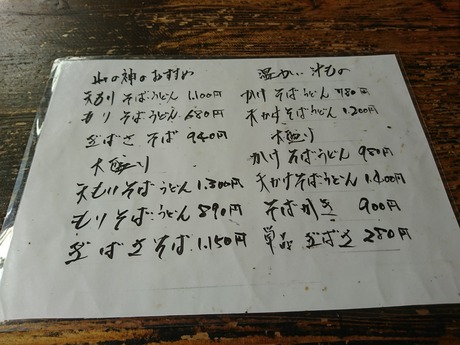 山の神のおすすめ
天もり そば・うどん 1.100円
もり そば・うどん 680円
ぎばさ そば 940円
大盛り
天もりそば・うどん 1.300円
もりそば・うどん 890円
ぎばさそば 1.150円
温かい 汁もの
かけ そば・うどん 780円
天かけそば・うどん 1.200円
大盛り
かけ そば・うどん 980円
天かけそば・うどん 1.400円
そばがき 900円
単品 ぎばさ 280円